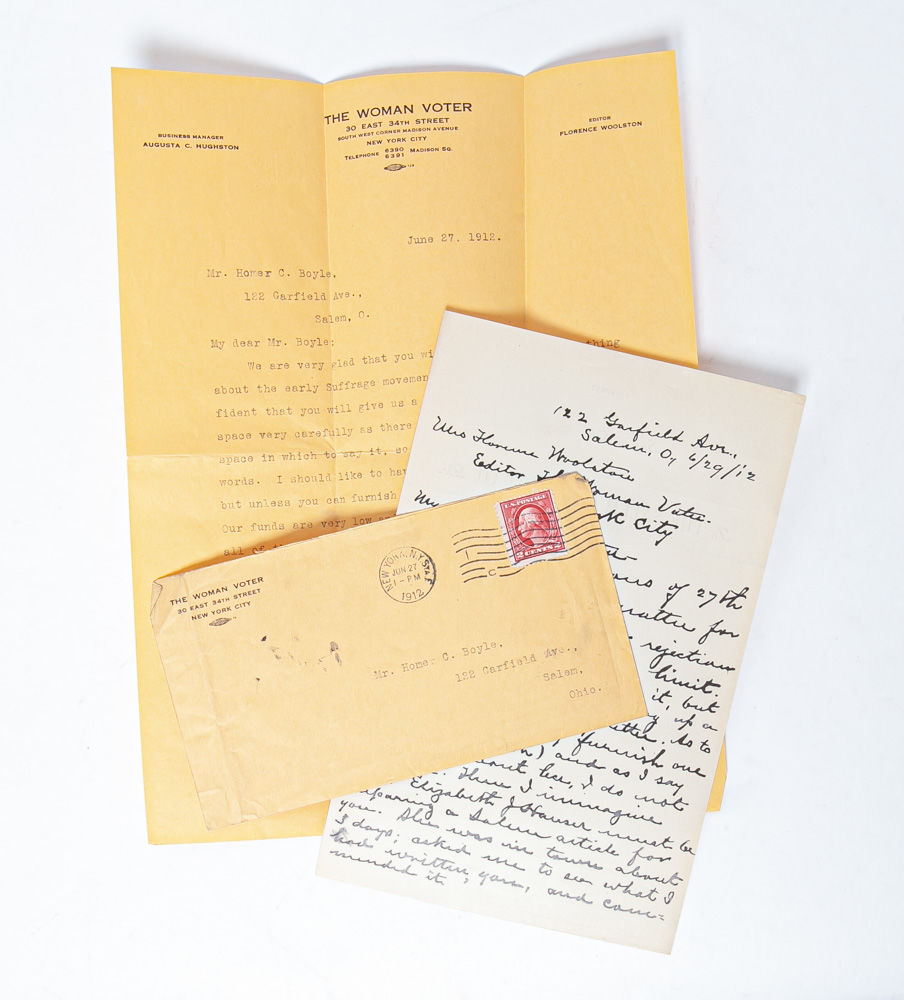 BUSINESS MANAGER
AUGUSTA C. HUGHSTON
THE WOMAN VOTER
30 EAST 34TH STREET
SOUTH WEST CORNER MADISON AVENUE
NEW YORK CITY
TELEPHONE 6390 6391 MADISON SQ.
EDITOR
FLORENCE WOOLSTON
June 27, 1912.
Mr. Homer C. Boyle,
122 Garfield Ave.,
Salem, O.
My dear Mr. Boyle:
We are very glad that you wi
about the early Suffrage movemen
fident that you will give us a
space very carefully as there
space in which to say it, so
words. I should like to hav
but unless you can furnish
Our funds are very low
all of
thing
122 Garfield Ave.,
Salem, O, 6/29/12
Mrs Florence Woolston
Editor The Woman Voter.
k City
of 27th
matter for
rejection
limit.
it, but
up a
So to
furnish one
) and as I say
I do not
Here I immagine
Elizabeth J Hauser must be
preparing a Salem article for
you. She was in town about
3 days; asked me to see what I
had written you, and com=
mended it.
THE WOMAN VOTER
30 EAST 34TH STREET
NEW YORK CITY
NEW YORK, N.Y. STA. F
JUN 27
1-PM
1912
U.S. POSTAGE
2 CENTS 2
Mr. Homer C. Boyle,
122 Garfield Ave.,
Salem,
Ohio.